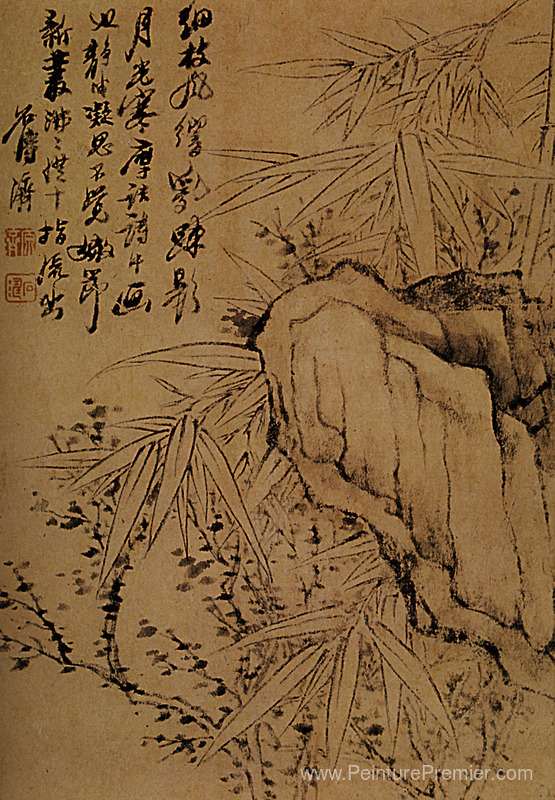 細枝風響亂疎影
月光寒摩詰詩中画
也静中凝思不覺嫩節
新叢沸〻從十指流出
石濤濟
www.PeinturePremier.com